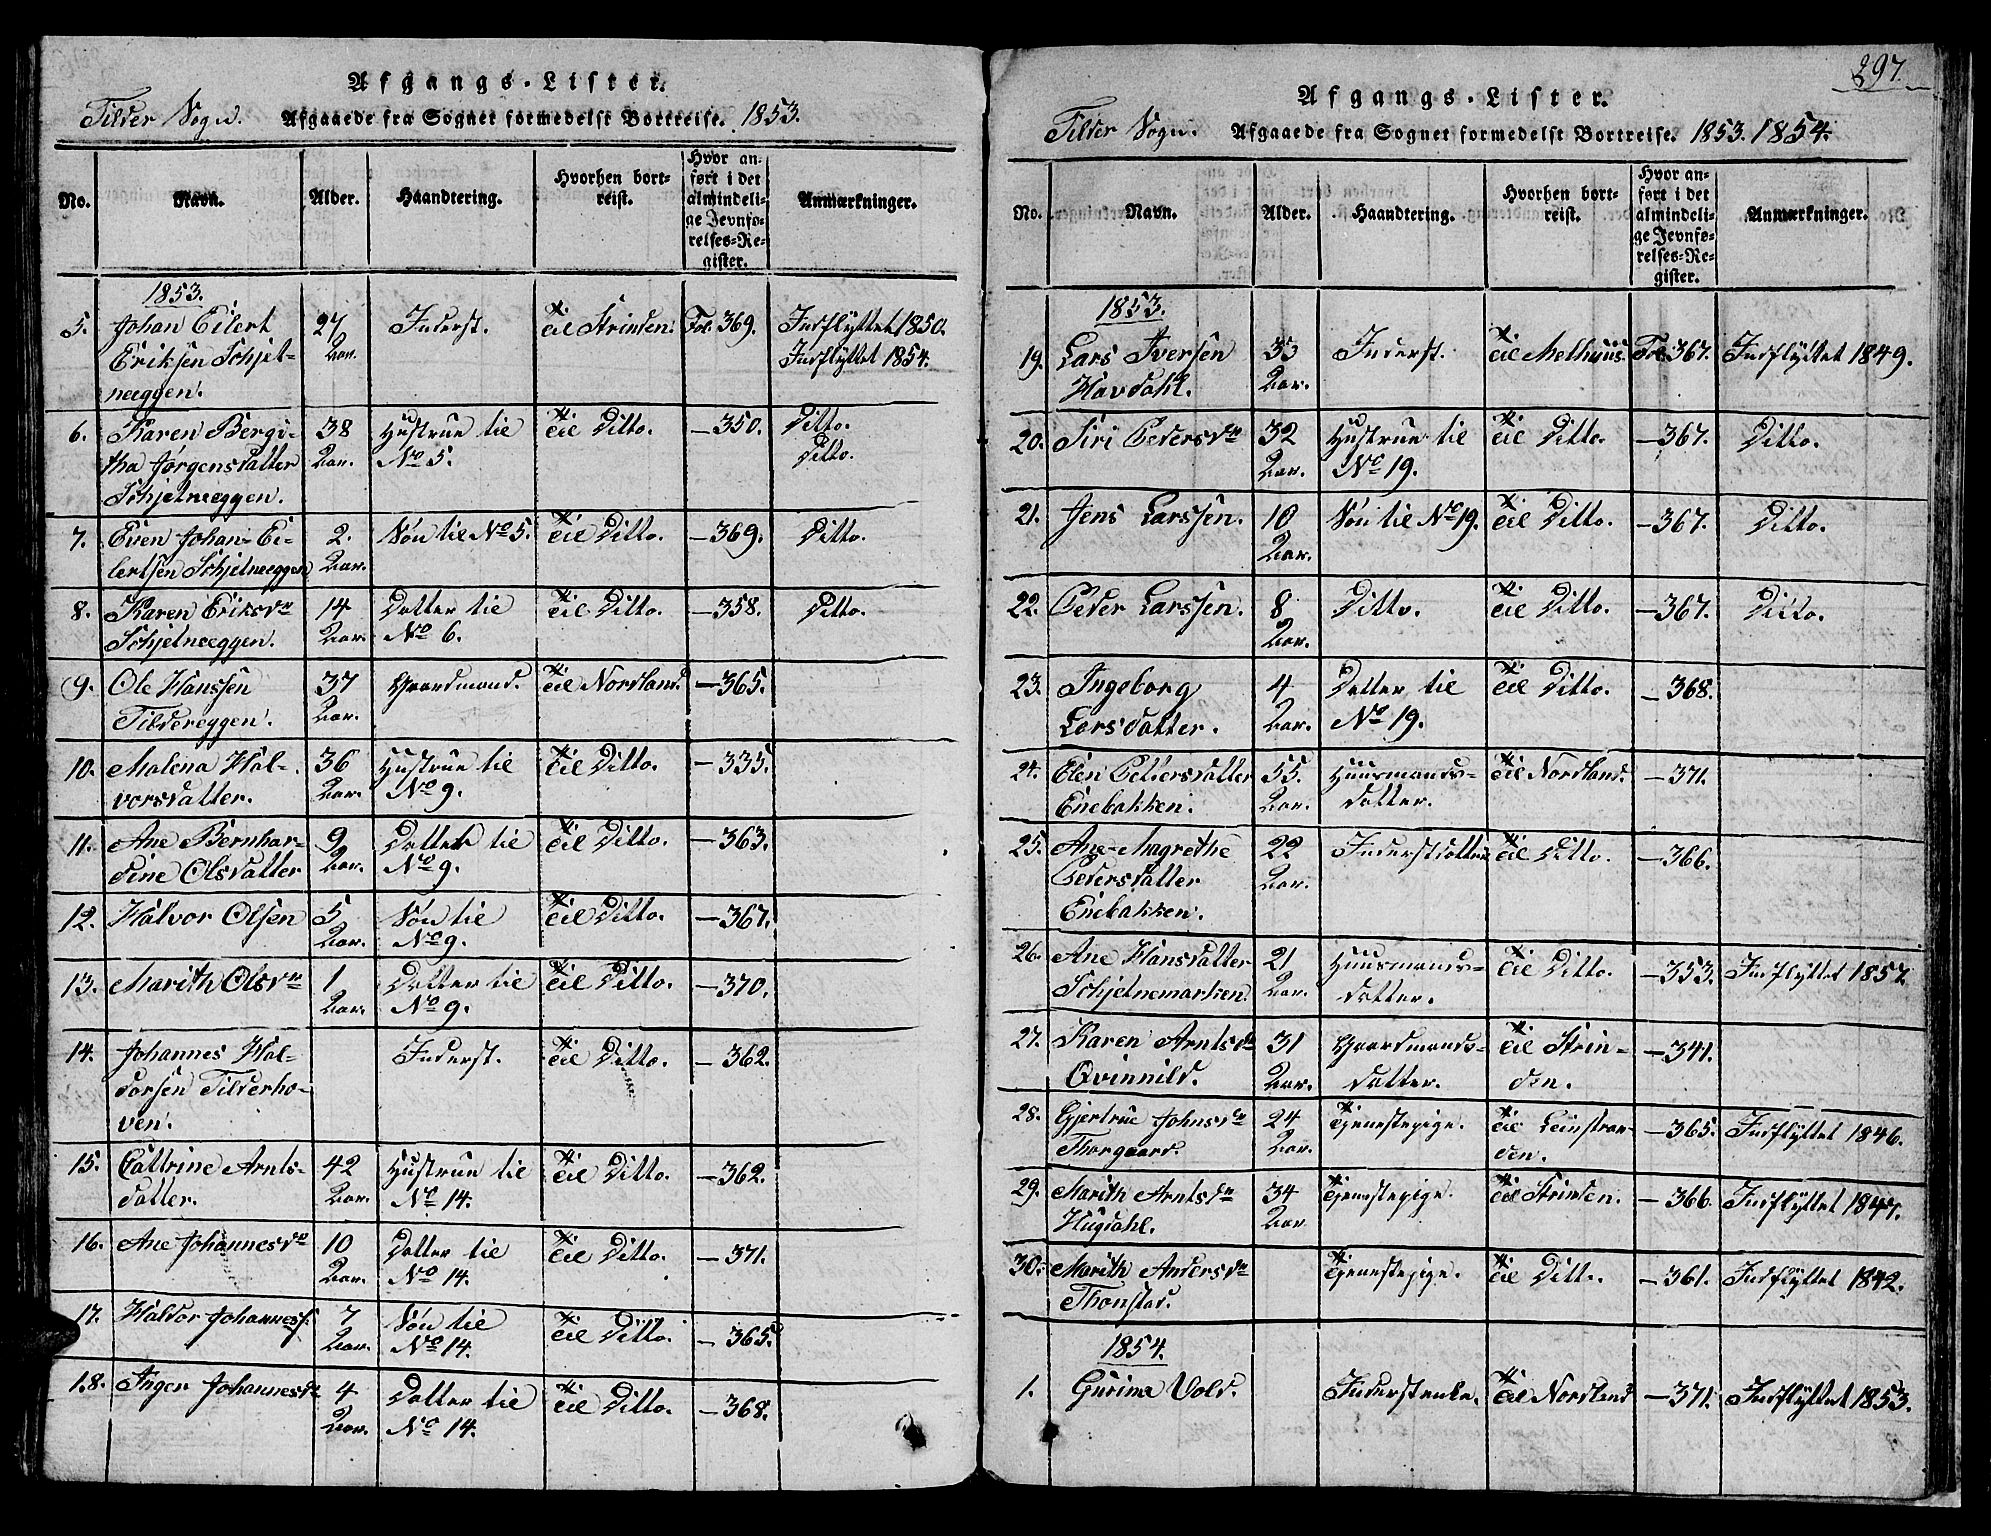 Afgangs-Lister.
Tilder Sogn. Afgaaede fra Sognet formedelst Bortreise. 1853.
No. Navn. Alder. Haandtering. Hvorhen bortreist. Hvor anført i det almindelige Jevnførelses-Register. Anmærkninger.
1853.
5. Johan Eilert 27 Inderst. til Strinden. Fol. 369. Indflyttet 1850.
Eriksen Schjet- Aar. Indflyttet 1854.
neeggen.
6. Karen Bergi- 38 Hustrue til til Ditto. —350. Ditto.
tha Jørgensdatter Aar. No 5. Ditto.
Schjetneeggen.
7. Even Johan-Ei- 2. Søn til No 5. til Ditto. —369. Ditto.
lertsen Schjetneeggen Aar.
8. Karen Eriksdr 14 Datter til til Ditto. —358. Ditto.
Schjetneeggen. Aar. No 6.
9. Ole Hanssen 37 Gaardmand. til Nordland. —365.
Tildereggen. Aar.
10. Malena Hal- 36 Hustrue til til Ditto. —335.
vorsdatter. Aar. No 9.
11. Ane Bernhar- 9 Datter til til Ditto. —363.
dine Olsdatter Aar. No 9.
12. Halvor Olsen 5 Søn til til Ditto. —367.
Aar. No 9.
13. Marith Olsdr 1 Datter til til Ditto. —370.
Aar. No 9.
14. Johannes Hal- Inderst. til Ditto. —362.
dorsen Tilderho-
ven.
15. Cattrine Arnts- 42 Hustrue til til Ditto. —362.
datter. Aar. No 14.
16. Ane Johannesdr 10 Datter til til Ditto. —371.
Aar. No 14.
17. Haldor Johanness. 7 Søn til til Ditto. —365.
Aar. No 14.
18. Inger Johannesdr 4 Datter til til Ditto. —368.
Aar. No 14.
297.
Afgangs-Lister.
Tilder Sogn. Afgaaede fra Sognet formedelst Bortreise. 1853. 1854.
No. Navn. Alder. Haandtering. Hvorhen bortreist. Hvor anført i det almindelige Jevnførelses-Register. Anmærkninger.
1853.
19. Lars Iversen 33 Inderst. til Melhuus. Fol. 367. Indflyttet 1849.
Havdahl. Aar.
20. Siri Pedersdr 32 Hustrue til til Ditto. —367. Ditto.
Aar. No 19.
21. Jens Larssen. 10 Søn til No 19. til Ditto. —367. Ditto.
Aar.
22. Peder Larssen. 8 Ditto. til Ditto. —367. Ditto.
Aar.
23. Ingeborg 4 Datter til til Ditto. —368.
Larsdatter. Aar. No 19.
24. Elen Pedersdatter 55 Huusmands- til Nordland. —371.
Enebakken. Aar. datter.
25. Ane-Magrethe 22 Inderstdatter til Ditto. —366.
Pedersdatter Aar.
Enebakken.
26. Ane Hansdatter 21 Huusmands- til Ditto. —353. Indflyttet 1852.
Schjetnemarken. Aar. datter.
27. Karen Arntsdr 31 Gaardmands- til Strin- —341.
Qvinnild. Aar. datter. den.
28. Gjertrue Johnsdr 24 Tjenestepige. til Leinstran- —365. Indflyttet 1846.
Thorgaard. Aar. den.
29. Marith Arntsdr 34 Tjenestepige. til Strinden. —366. Indflyttet 1847.
Hugdahl. Aar
30. Marith Andersdr Tjenestepige. til Ditto. —361. Indflyttet 1842.
Thonstad.
1854.
1. Gurine Vold. Inderstenke. til Nordland —371. Indflyttet 1853.